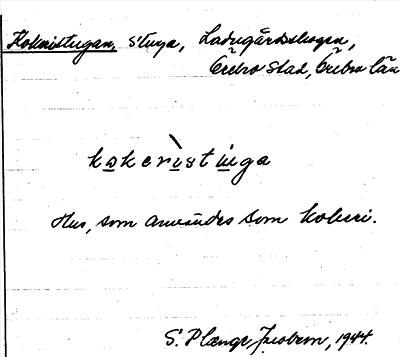 Kokeristugan, stuga, Ladugårdsskogen,
Örebro stad, Örebro län
kokeristuga
Hus, som användes som kokeri.
S. Plænge Jacobson, 1944.